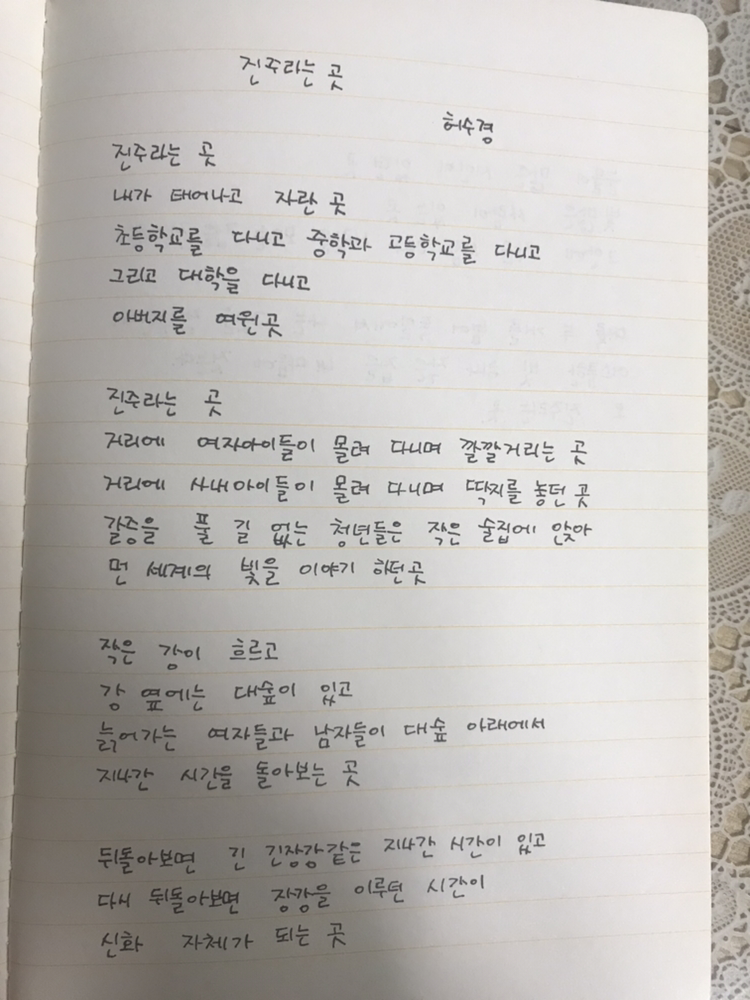 진주라는 곳
허수경
진주라는 곳
내가 태어나고 자란 곳
초등학교를 다니고 중학과 고등학교를 다니고
그리고 대학을 다니고
아버지를 여윈곳
진주라는 곳
거리에 여자아이들이 몰려 다니며 깔깔거리는 곳
거리에 사내아이들이 몰려 다니며 딱지를 놓던 곳
갈증을 풀 길 없는 청년들은 작은 술집에 앉아
먼 세계의 빛을 이야기 하던곳
작은 강이 흐르고
강 옆에는 대숲이 있고
늙어가는 여자들과 남자들이 대숲 아래에서
지나간 시간을 돌아보는 곳
뒤돌아보면 긴 긴장강같은 지나간 시간이 있고
다시 뒤돌아보면 장강을 이루던 시간이
신화 자체가 되는 곳